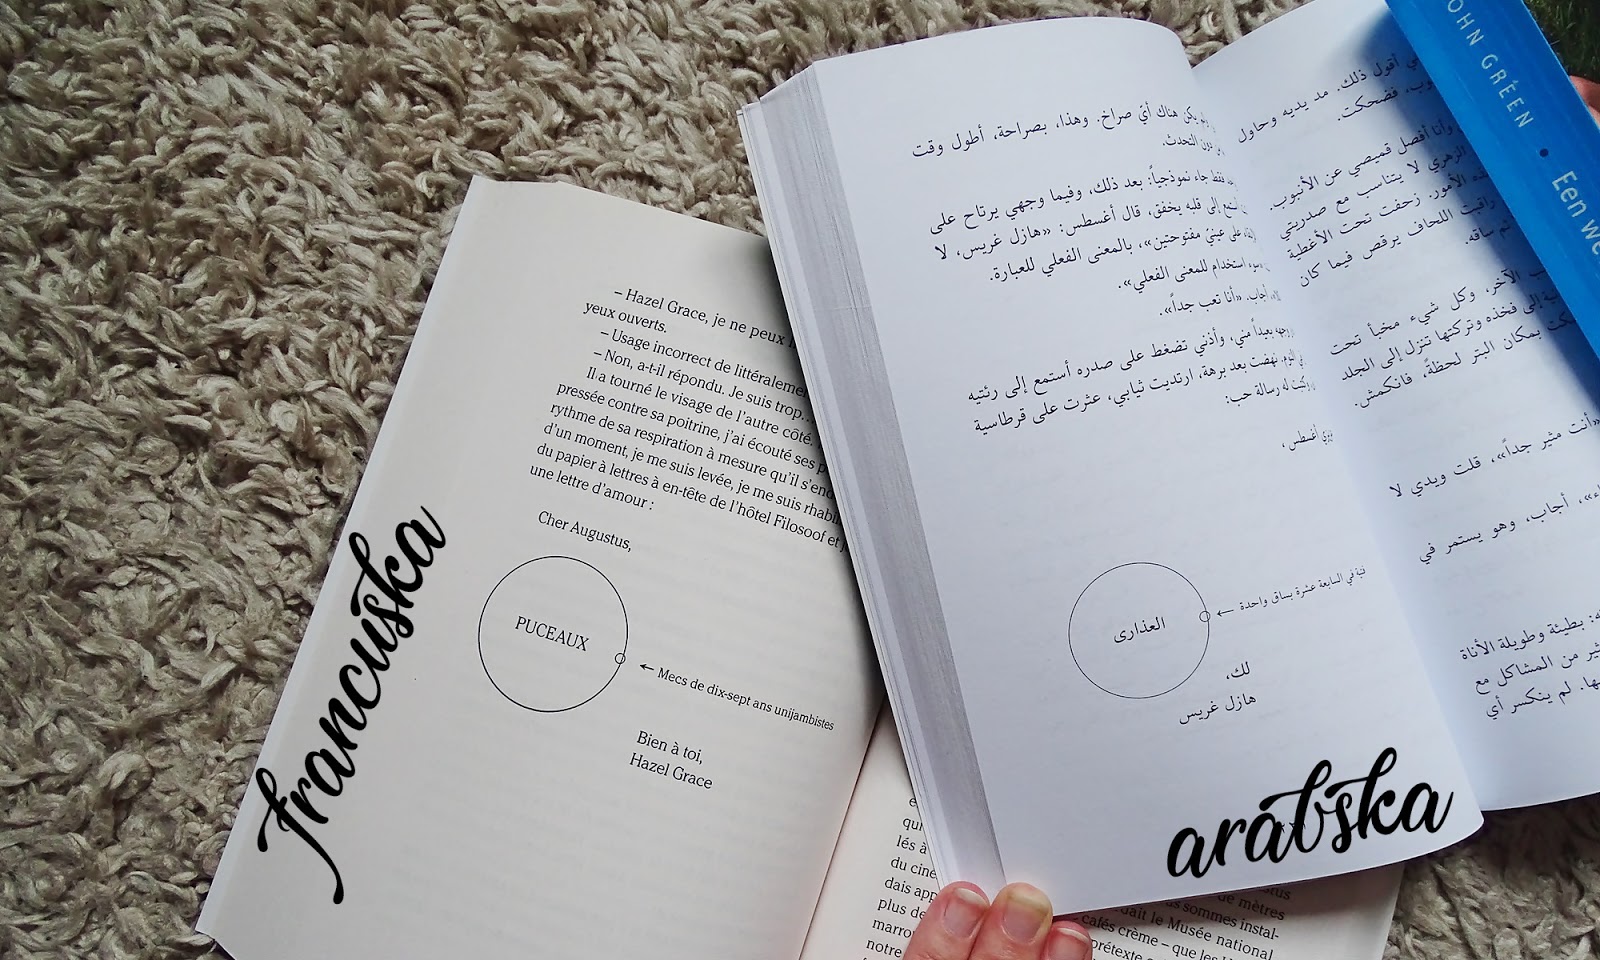 – Hazel Grace, je ne peux
yeux ouverts.
– Usage incorrect de
– Non, a-t-il répondu. Je suis trop…
Il a tourné le visage de l'autre côté.
pressée contre sa poitrine, j'ai écouté ses
rythme de sa respiration à mesure qu'il
d'un moment, je me suis levée, je me suis
du papier à lettres à en-tête de l'hôtel Filosoof et
une lettre d'amour :
Cher Augustus,
PUCEAUX
← Mecs de dix-sept ans unijambistes
Bien à toi,
Hazel Grace
francuska
يكن هناك أيّ صراخ. وهذا، بصراحة، أطول وقت
دون التحدث.
فقط جاء نموذجياً: بعد ذلك، وفيما وجهي يرتاح على
إلى قلبه يخفق، قال أغسطس: «هازل غريس، لا
على عينيّ مفتوحتين»، بالمعنى الفعلي للعبارة.
استخدام للمعنى الفعلي».
أجاب. «أنا تعب جداً».
بعيداً مني، وأذني تضغط على صدره أستمع إلى رئتيه
نهضت بعد برهة، ارتديت ثيابي، عثرت على قرطاسية
له رسالة حب:
أغسطس،
العذارى
← فتية في السابعة عشرة بساق واحدة
لك،
هازل غريس
arabska
أقول ذلك. مد يديه وحاول
فضحكت.
وأنا أفصل قميصي عن الأنبوب.
الزهري لا يتناسب مع صدريتي
الأمور. زحفت تحت الأغطية
راقبت اللحاف يرقص فيما كان
ثم ساقه.
الآخر، وكل شيء مخبأ تحت
إلى فخذه وتركتها تنزل إلى الجلد
بمكان البتر لحظةً، فانكمش.
«أنت مثير جداً»، قلت ويدي لا
أجاب، وهو يستمر في
بطيئة وطويلة الأناة
من المشاكل مع
لم ينكسر أي
JOHN GREEN • Een
lés à
du
plus de
notre
de mètres
sommes instal-
le Musée national
cafés crème – que les